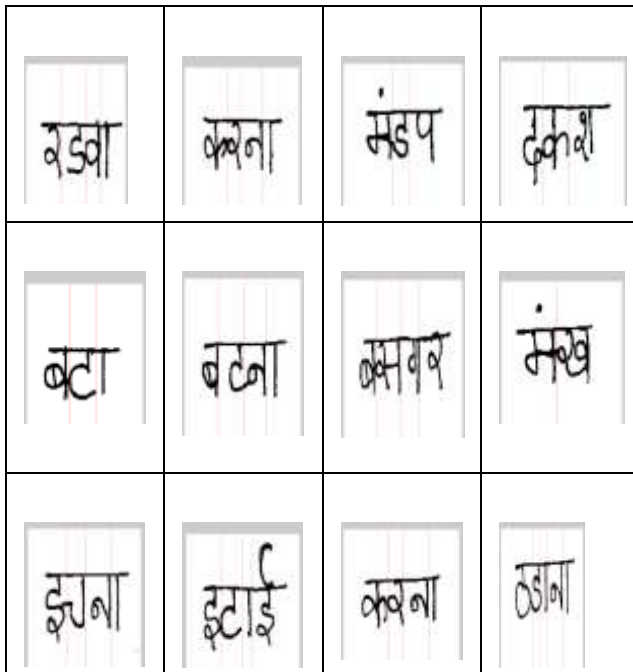 रडवा करना मंडप दकश
बटा बटना बसवर मंख
इचना इटाई करना ठडाना